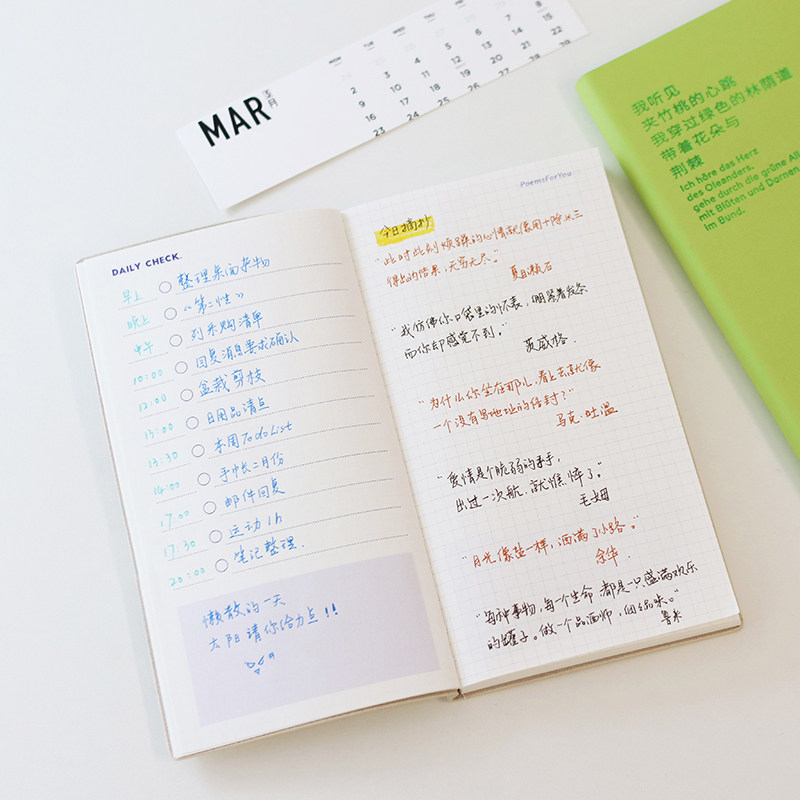 MAR 三月
MON TUE WED THU FRI SAT SUN
1
2 3 4 5 6 7 8
9 10 11 12 13 14 15
16 17 18 19 20 21 22
23
29
我听见
夹竹桃的心跳
我穿过绿色的林荫道
带着花朵与
荆棘
Ich höre das Herz
des Oleanders,
gehe durch die grüne All
mit Blüten und Dornen
im Bund.
DAILY CHECK.
早上 整理桌面杂物
晚上 《第二性》
中午 列采购清单
10:00 回复消息要求确认
12:00 盆栽剪枝
13:00 日用品清点
13:30 本周Todo List
14:00 手帐二月份
17:00 邮件回复
17:30 运动1h
20:00 笔记整理.
懒散的一天
太阳请你给力点!!
PoemsForYou
今日摘抄
“此时此刻烦躁的心情就像用十除以三
得出的结果,无穷无尽。”
夏目漱石
“我仿佛你口袋里的怀表,绷紧着发条
而你却感觉不到。”
茨威格.
“为什么你坐在那儿,看上去就像
一个没有写地址的信封?”
马克·吐温
“爱情是个脆弱的水手,
出过一次航,就憔悴了。”
毛姆
“月光像盐一样,洒满了小路。”
余华.
“每种事物,每一个生命,都是一只盛满欢乐
的罐子。做一个品酒师,细细品味。”
鲁米